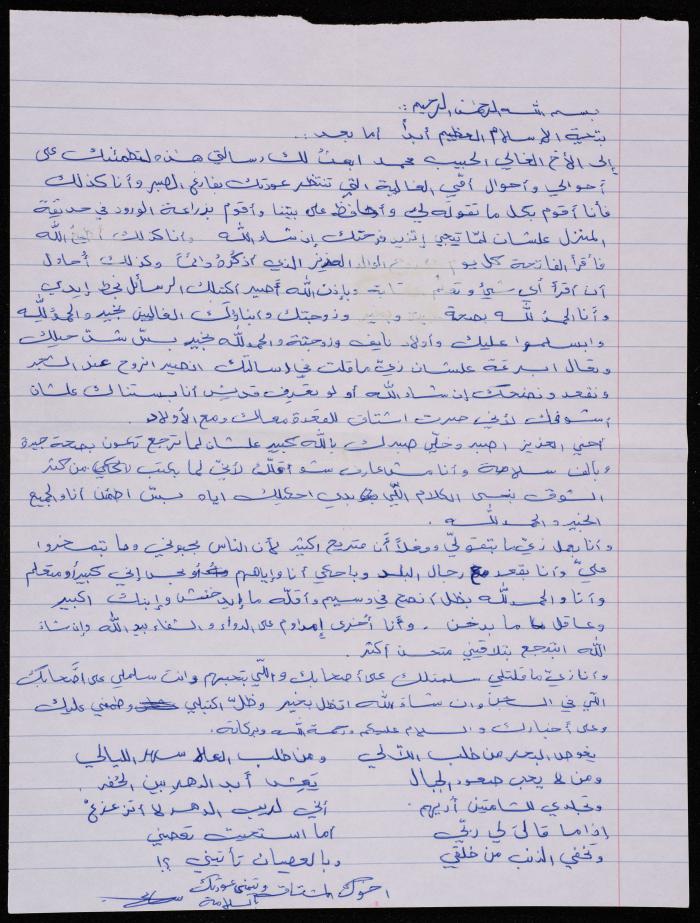 بسم الله الرحمن الرحيم :.
بتحية الإسلام العظيم أبدأ أما بعد ..
إلى الأخ الغالي الحبيب محمد ابعث لك رسالتي هذه لتطمئنك على
أحوالي وأحوال أمي الغالية التي تنتظر عودتك بفارغ الصبر وأنا كذلك
فأنا أقوم بكل ما تقوله لي وأحافظ على بيتنا وأقوم بزراعة الورود في حديقة
المنزل علشان لمّا تيجي إتزيد فرحتك إن شاء الله وأنا كذلك الله
فأقرأ الفاتحة كل يوم الوالد العزيز الذي أذكره دائماً وكذلك أحاول
أن أقرأ أي شيء وبإذن الله أصير اكتبلك الرسائل بخط إيدي
وأنا الحمد لله بصحة وزوجتك وابناؤك الغاليين بخير والحمد لله
وابسلموا عليك وأولاد نايف وزوجته والحمد لله بخير بسّ شدّ حيلك
وتعال ابسرعة علشان زيّ ما قلت في رسالتك انصير انروح عند الشجر
ونقعد ونضحك إن شاء الله أو لو بتعرف قديش أنا بستناك علشان
أشوفك لأني صرت اشتاق للقعدة معاك ومع الأولاد.
أخي العزيز اصبر وخلي صبرك بالله كبير علشان لما ترجع تكون بصحة جيدة
وبألف سلامة وأنا مش عارف شو أقلّك لأنّي لما بكتب لإلك من كثر
الشوق بنسى الكلام اللّي بدي احكيلك اياه بسّ اطمن أنا والجميع
بخير والحمد لله.
وأنا بعمل زيّ ما بتقولّي وفعلاً أن متريح اكثير لأن الناس بحبوني وما بتمسخروا
عليّ وأنا بقعد مع رجال البلد وباحكي أنا وإياهم وبحس إني كبير أو متعلم
وأنا والحمد لله بظل أنصح في وسيم وأقلّه ما إيدخنش وإبنك اكبير
وعاقل ما بدخن. وأنا أخرى إمداوم على الدواء والشفاء بيد الله وإن شاء
الله ابترجع بتلاقيني متحسن أكثر.
وأنا زيّ ما قلتلي سلمتلك على أصحابك واللّي بتحبهم وانت سلملي على أصحابك
اللّي في السجن وإن شاء الله اتظل بخير وظلّ اكتبلي وطمني عليك
وعلى أخبارك والسلام عليكم ورحمة الله وبركاته.
يغوص البحر من طلب اللآلي ومن طلب العلا سهر الليالي
ومن لا يحب صعود الجبال يعش أبد الدهر بين الحفر.
وتجلدي للشامتين أريهم. أني لريب الدهر لا أتزعزع
إذا ما قال لي ربّي أما استحيت تعصيني
وتخفي الذنب من خلقي وبالعصيان تأتيني ؟!
اخوك المشتاق ويتمنى عودتك
بالسلامة